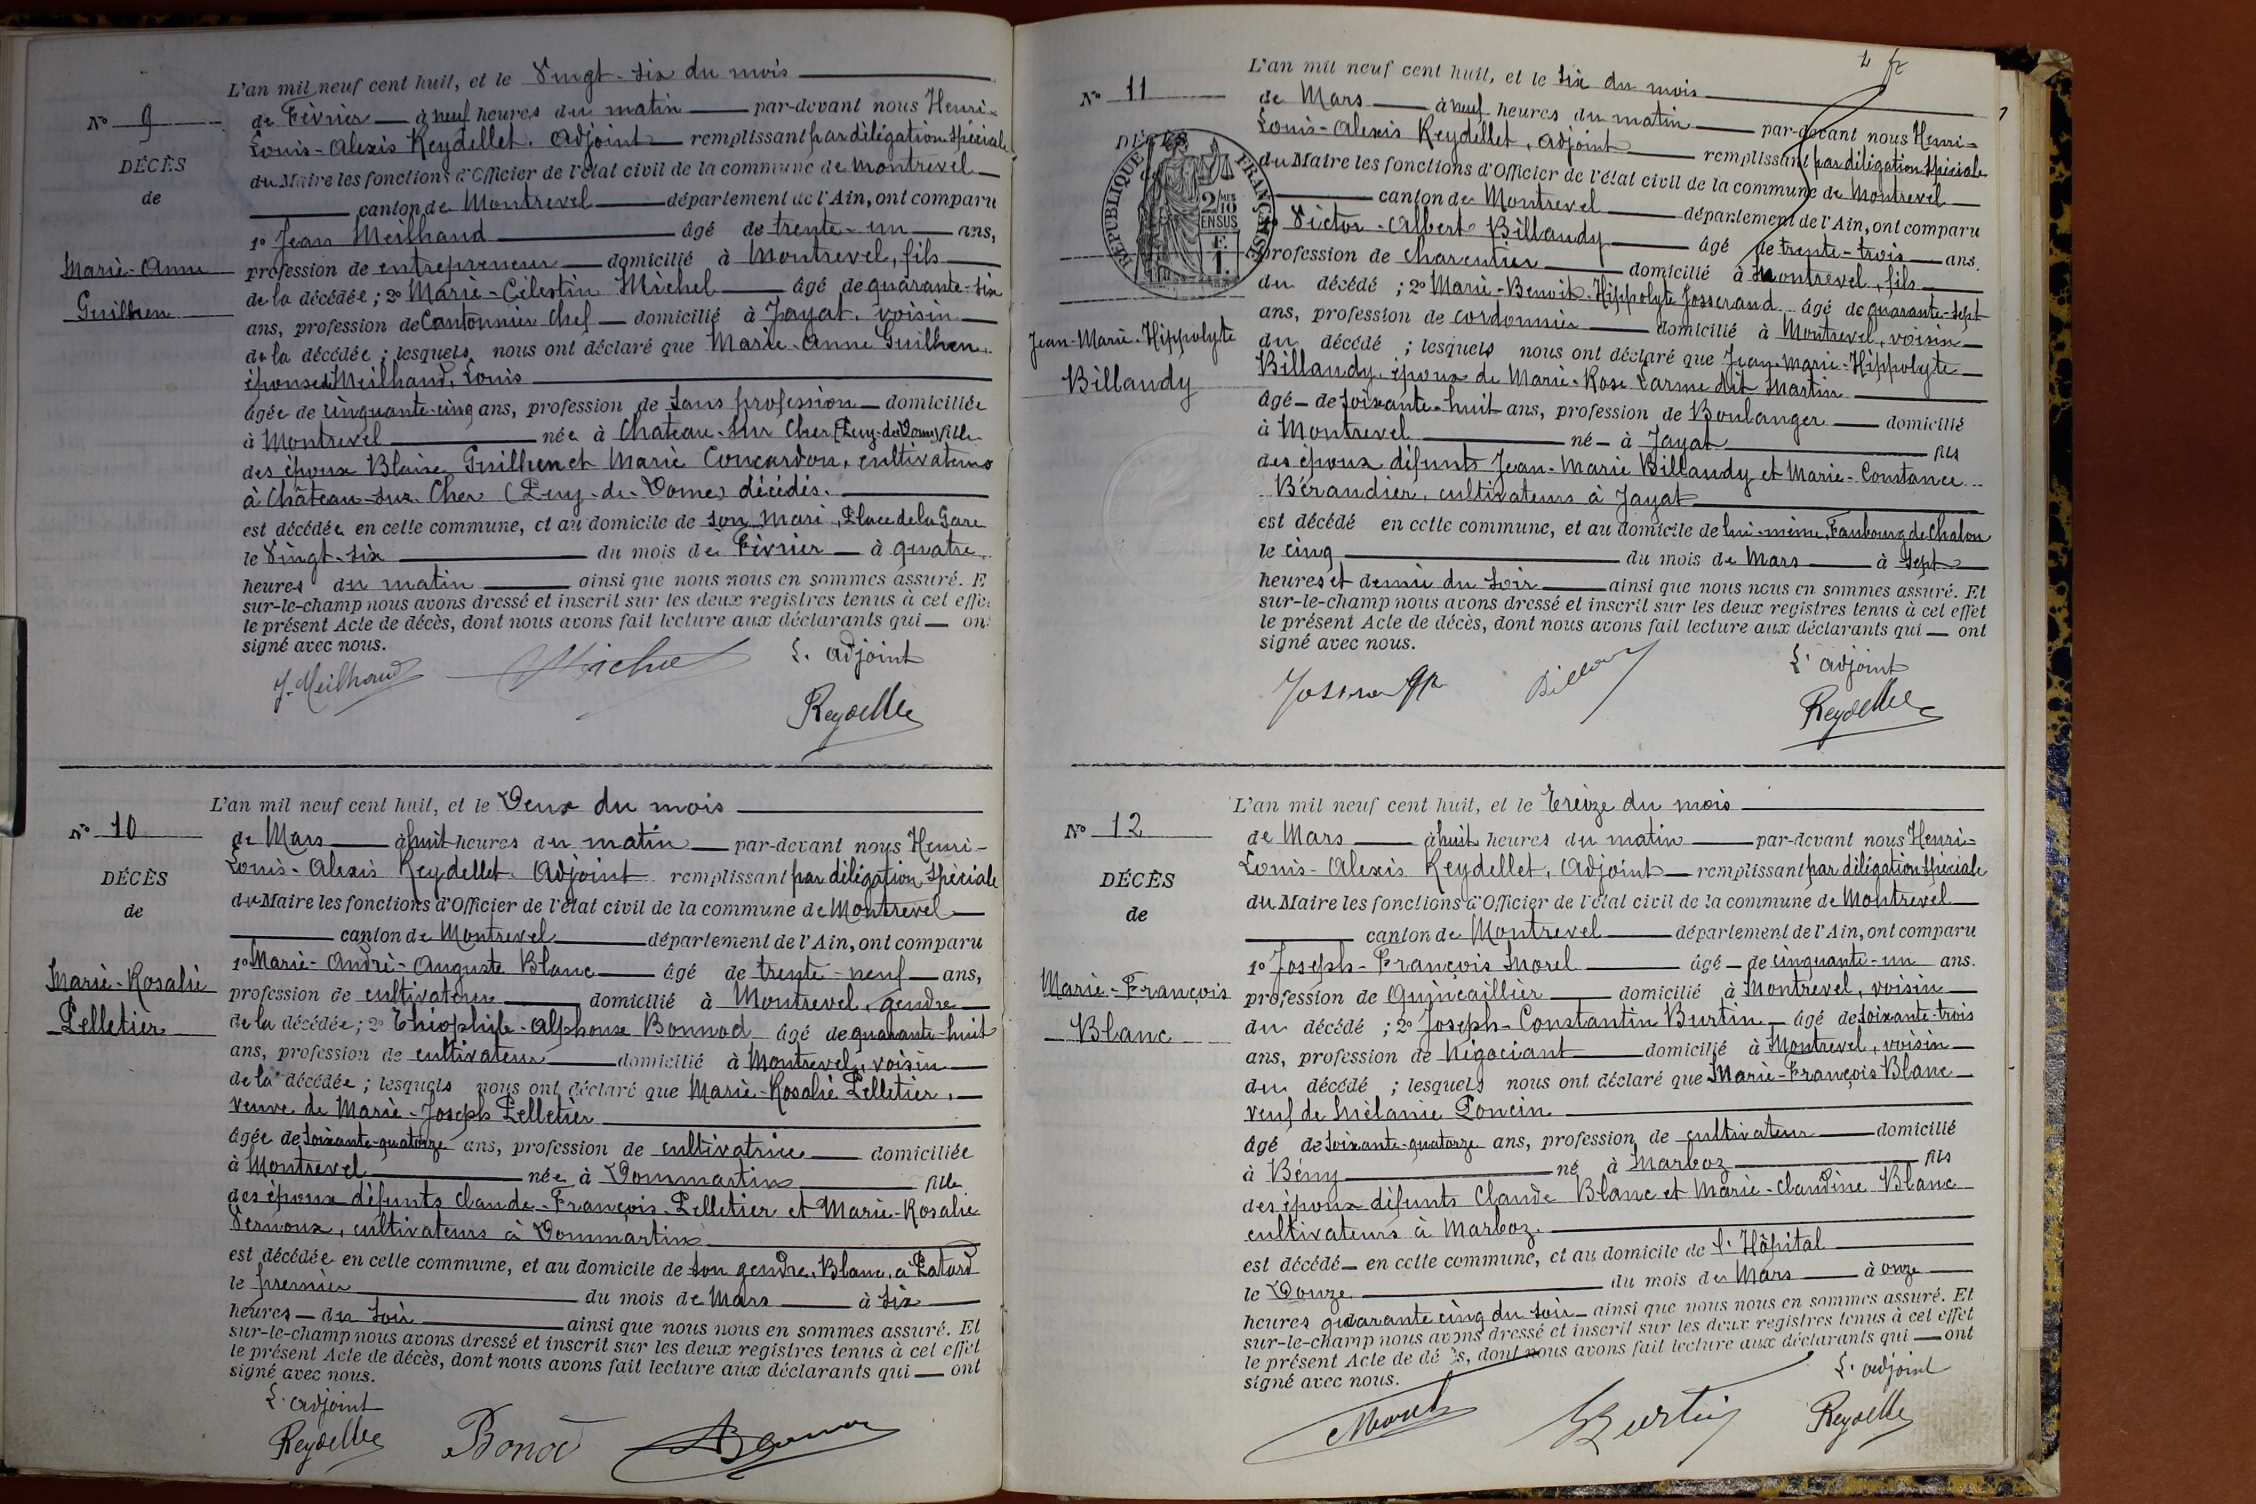 L'an mil neuf cent huit, et le Vingt-six du mois
N° 9
de Février à neuf heures du matin par-devant nous Henri-
Louis-Alexis Reydellet, Adjoint remplissant par délégation spéciale
DÉCÈS
du Maire les fonctions d'Officier de l'état civil de la commune de Montrevel
de
canton de Montrevel département de l'Ain, ont comparu
1° Jean Meilhaud âgé de trente-un ans,
Marie-Anne
profession de entrepreneur domicilié à Montrevel, fils
de la décédée ; 2° Marie-Célestin Michel âgé de quarante-six
Guilhen
ans, profession de Cantonnier chef domicilié à Jayat, voisin
de la décédée ; lesquels nous ont déclaré que Marie-Anne Guilhen,
épouse de Meilhaud, Louis
âgée de cinquante-cinq ans, profession de sans profession domiciliée
à Montrevel née à Chateau-sur Cher (Puy-de-Dome) fille
des époux Blaise Guilhen et Marie Concardon, cultivateurs
à Château-sur Cher (Puy-de-Dome) décédés.
est décédée en cette commune, et au domicile de son mari, Place de la Gare
le Vingt-six du mois de Février à quatre
heures du matin ainsi que nous nous en sommes assuré. E
sur-le-champ nous avons dressé et inscrit sur les deux registres tenus à cet effe
le présent Acte de décès, dont nous avons fait lecture aux déclarants qui on
signé avec nous.
J. Meilhaud Michel L'adjoint
Reydellet
L'an mil neuf cent huit, et le Deux du mois
N° 10
de Mars à huit heures du matin par-devant nous Henri-
Louis-Alexis Reydellet, Adjoint remplissant par délégation spéciale
DÉCÈS
du Maire les fonctions d'Officier de l'état civil de la commune de Montrevel
de
canton de Montrevel département de l'Ain, ont comparu
1° Marie-André-Auguste Blanc âgé de trente-neuf ans,
Marie-Rosalie
profession de cultivateur domicilié à Montrevel, gendre
Pelletier
de la décédée ; 2° Théophile-Alphonse Bonnod âgé de quarante-huit
ans, profession de cultivateur domicilié à Montrevel, voisin
de la décédée ; lesquels nous ont déclaré que Marie-Rosalie Pelletier,
veuve de Marie-Joseph Pelletier
âgée de soixante-quatorze ans, profession de cultivatrice domiciliée
à Montrevel née à Dommartin fille
des époux défunts Claude-François Pelletier et Marie-Rosalie
Vernoux, cultivateurs à Dommartin
est décédée en cette commune, et au domicile de son gendre, Blanc, à
le premier du mois de Mars à six
heures du soir ainsi que nous nous en sommes assuré. Et
sur-le-champ nous avons dressé et inscrit sur les deux registres tenus à cet effet
le présent Acte de décès, dont nous avons fait lecture aux déclarants qui ont
signé avec nous.
L'adjoint
Reydellet Bonod
2 fr
L'an mil neuf cent huit, et le six du mois
N° 11
de Mars à neuf heures du matin par-devant nous Henri-
Louis-Alexis Reydellet, adjoint remplissant par délégation spéciale
DÉCÈS
du Maire les fonctions d'Officier de l'état civil de la commune de Montrevel
canton de Montrevel département de l'Ain, ont comparu
RÉPUBLIQUE FRANÇAISE
2/10 EN SUS
F. 1.
1° Victor-Albert Billaudy âgé de trente-trois ans.
profession de charcutier domicilié à Montrevel, fils
du décédé ; 2° Marie-Benoit-Hippolyte Josserand âgé de quarante-sept
ans, profession de cordonnier domicilié à Montrevel, voisin
Jean-Marie-Hippolyte
du décédé ; lesquels nous ont déclaré que Jean-Marie-Hippolyte
Billaudy
Billaudy, époux de Marie-Rose Carme dit Martin
âgé de soixante-huit ans, profession de Boulanger domicilié
à Montrevel né à Jayat fils
des époux défunts Jean-Marie Billaudy et Marie-Constance
Bérandier, cultivateurs à Jayat
est décédé en cette commune, et au domicile de lui-même, Faubourg de Chalon
le cinq du mois de Mars à sept
heures et demie du soir ainsi que nous nous en sommes assuré. Et
sur-le-champ nous avons dressé et inscrit sur les deux registres tenus à cet effet
le présent Acte de décès, dont nous avons fait lecture aux déclarants qui ont
signé avec nous.
L'adjoint
Reydellet
L'an mil neuf cent huit, et le Treize du mois
N° 12
de Mars à huit heures du matin par-devant nous Henri-
Louis-Alexis Reydellet, Adjoint remplissant par délégation spéciale
DÉCÈS
du Maire les fonctions d'Officier de l'état civil de la commune de Montrevel
de
canton de Montrevel département de l'Ain, ont comparu
1° Joseph-François Morel âgé de cinquante-un ans.
Marie-François
profession de Quincaillier domicilié à Montrevel, voisin
Blanc
du décédé ; 2° Joseph-Constantin Burtin âgé de soixante-trois
ans, profession de négociant domicilié à Montrevel, voisin
du décédé ; lesquels nous ont déclaré que Marie-François Blanc
veuf de Mélanie Poncin
âgé de soixante-quatorze ans, profession de cultivateur domicilié
à Bény né à Marboz fils
des époux défunts Claude Blanc et Marie-Claudine Blanc
cultivateurs à Marboz.
est décédé en cette commune, et au domicile de l'Hôpital
le Douze du mois de Mars à onze
heures quarante cinq du soir ainsi que nous nous en sommes assuré. Et
sur-le-champ nous avons dressé et inscrit sur les deux registres tenus à cet effet
le présent Acte de décès, dont nous avons fait lecture aux déclarants qui ont
signé avec nous.
L'adjoint
Morel Burtin Reydellet